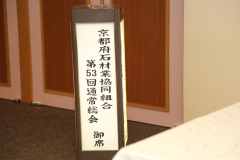 京都府石材業協同組合
第53回通常総会
御席